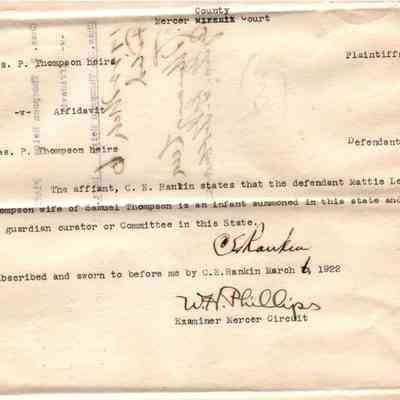 County
Mercer Circuit Court
as. P. Thompson heirs Plaintiffs
-v- Affidavit
as. P. Thompson heirs Defendant
The affiant, C. E. Rankin states that the defendant Mattie Le
ompson wife of Samuel Thompson is an infant summoned in this state and
guardian curator or Committee in this State.
C E Rankin
ubscribed and sworn to before me by C.E.Rankin March 6, 1922
W.H. Phillips
Examiner Mercer Circuit